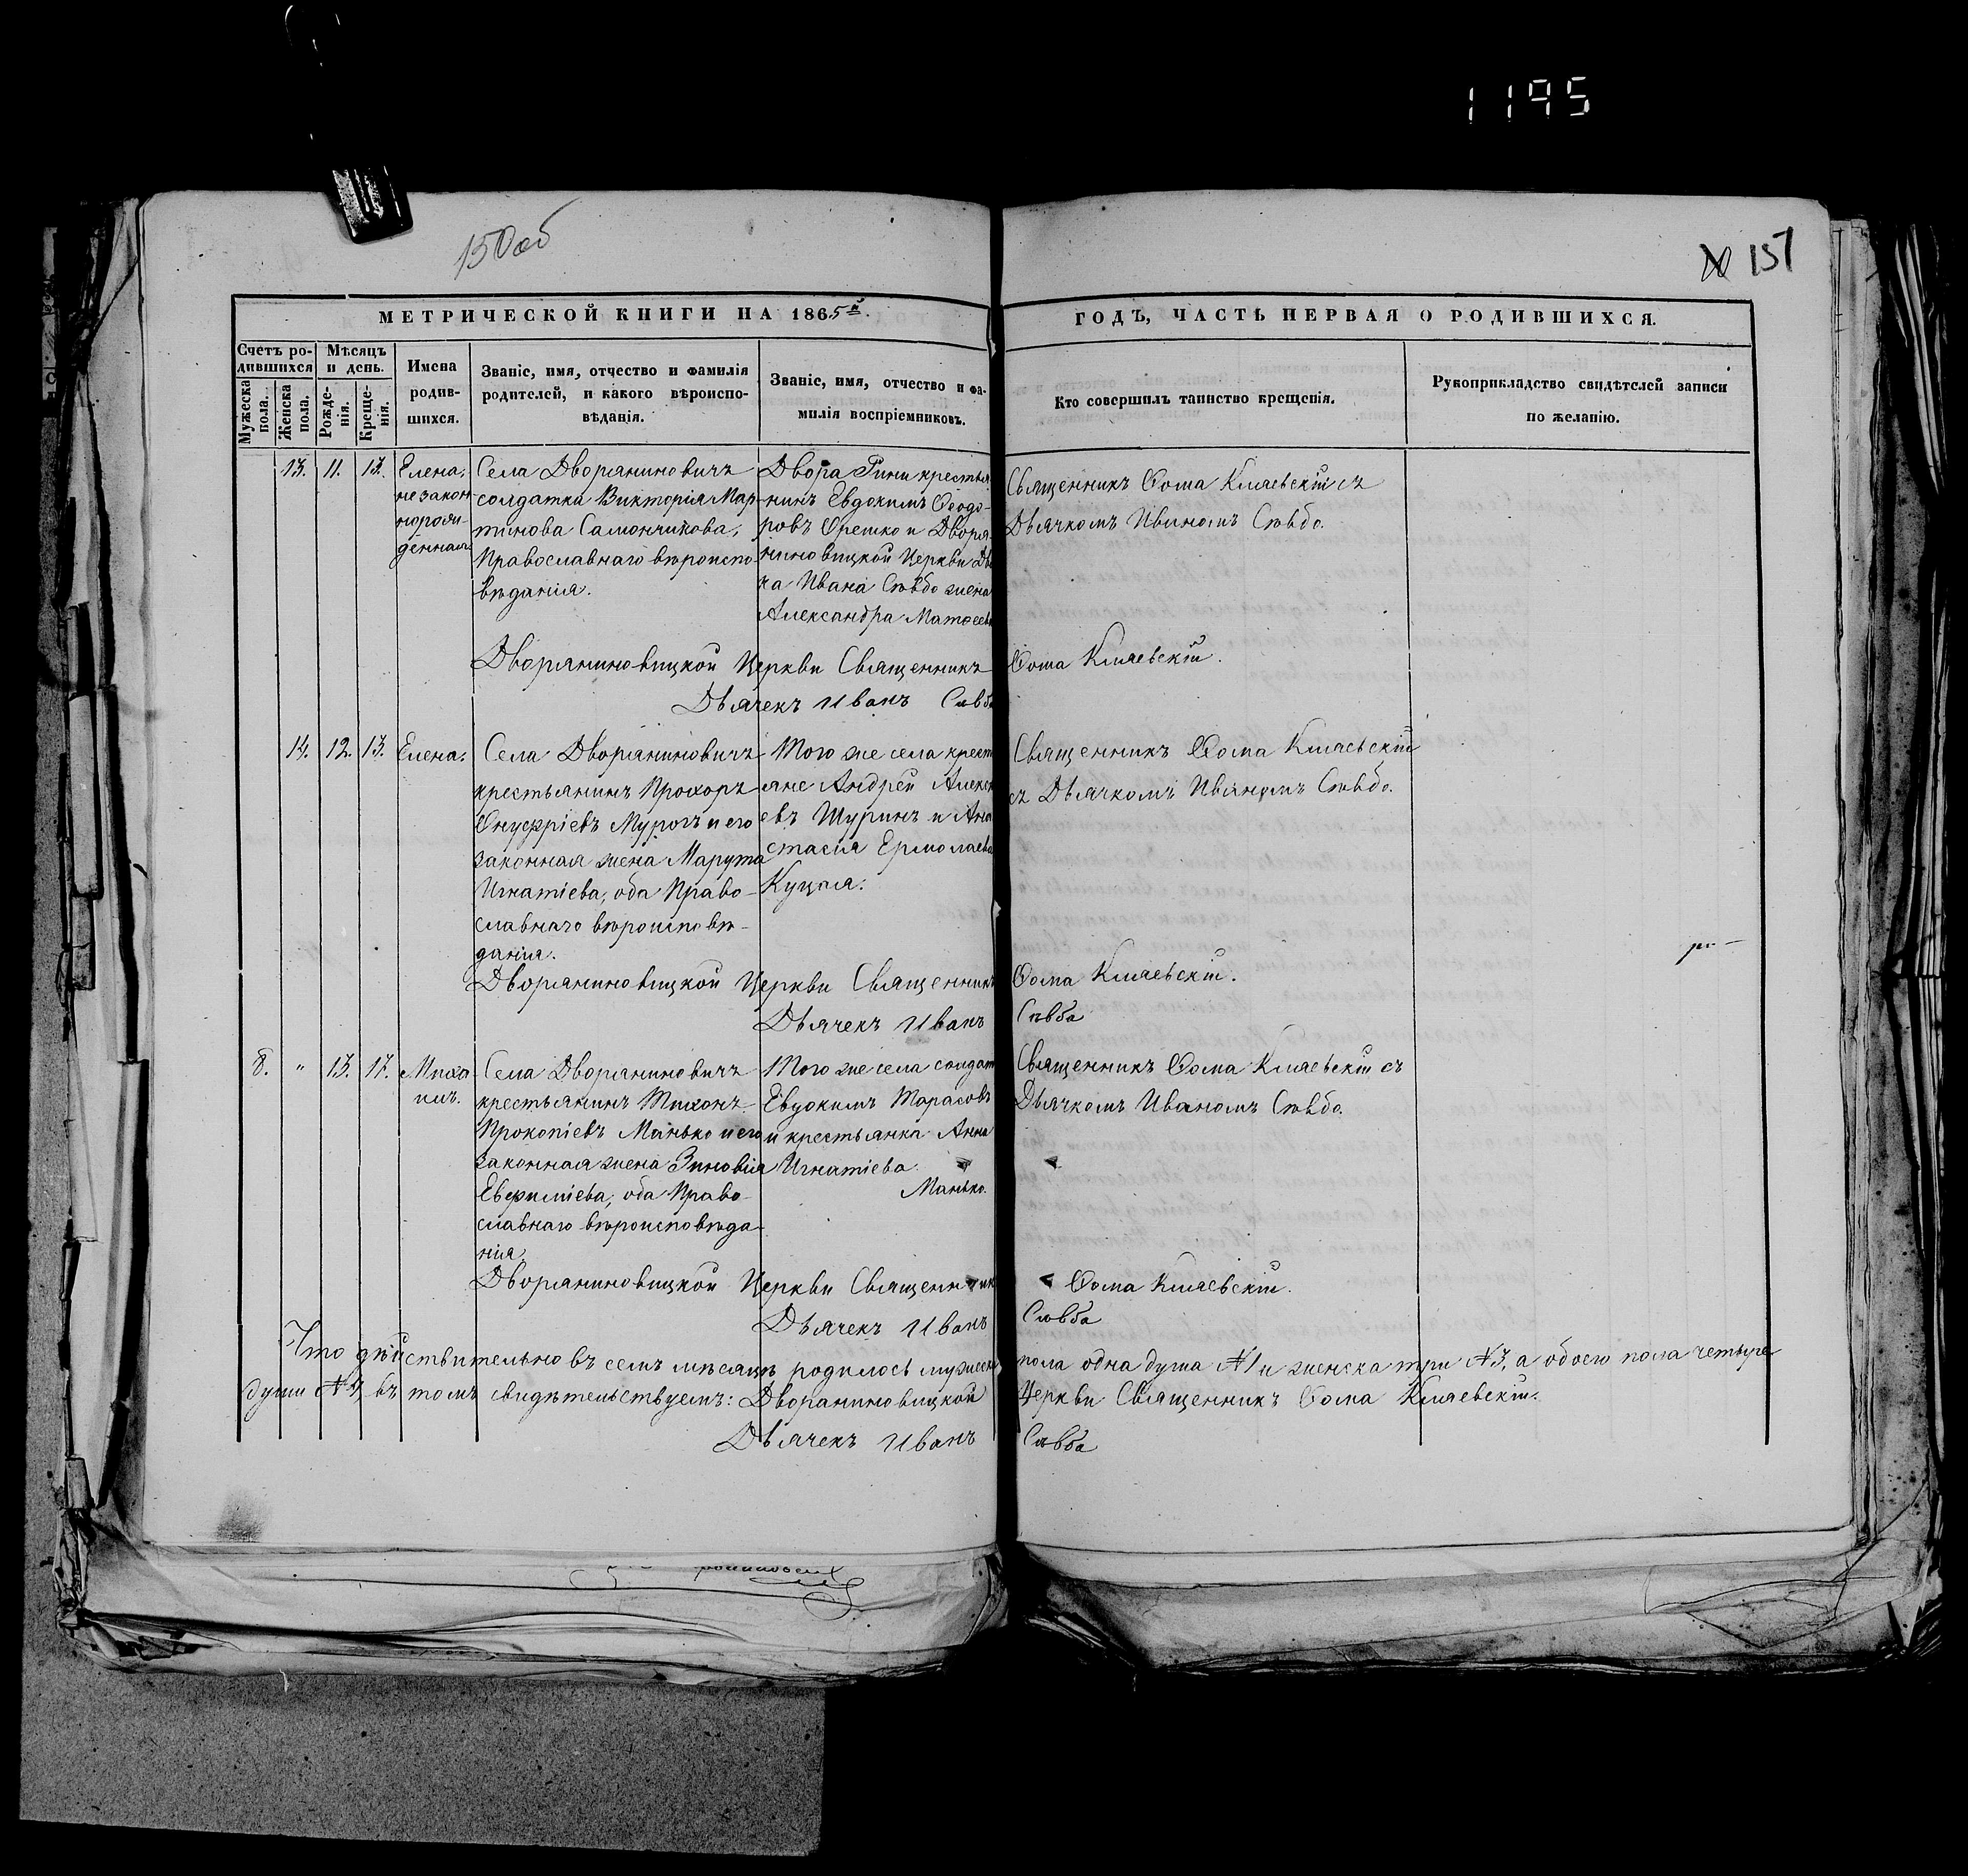 1195
150 об
151
МЕТРИЧЕСКОЙ КНИГИ НА 1865й.
ГОДЪ, ЧАСТЬ ПЕРВАЯ О РОДИВШИХСЯ.
Счетъ ро-
дившихся
Мужеска
пола.
Женска
пола.
Мѣсяцъ
и день.
Рожде-
нія.
Креще-
нія.
Имена
родив-
шихся.
Званіе, имя, отчество и фамилія
родителей, и какого вѣроиспо-
вѣданія.
Званіе, имя, отчество и фа-
милія воспріемниковъ.
Кто совершилъ таинство крещенія.
Рукоприкладство свидѣтелей записи
по желанію.
13. 11. 13.
Елена,
незакон
норожи-
денная
Села Дворяниновичъ
солдатка Викторія Мар-
тинова Самончикова,
Православнаго вѣроиспо-
вѣданія.
Двора Гини крестья
нинъ Евдокимъ Ѳеодо-
ровъ Орешко и Дворя-
ниновицкой Церкви Дья
ка Ивана Слѣбо жена
Александра Матѳеева
Священникъ Ѳома Кляевскій съ
Дьячкомъ Иваномъ Слѣбо.
Дворяниновицкой Церкви Священникъ Ѳома Кляевскій.
Дьячекъ Иванъ Слѣба
14. 12. 13. Елена.
Села Дворяниновичъ
крестьянинъ Прохоръ
Онуфріевъ Мурогъ и его
законная жена Марута
Игнатіева, оба Право-
славнаго вѣроисповѣ-
данія.
Того же села крест
яне Андрей Алексѣ
евъ Шуринъ и Ана
стасія Ермолаева
Куцая.
Священникъ Ѳома Кляевскій
съ Дьячкомъ Иваномъ Слѣбо.
Дворяниновицкой Церкви Священникъ Ѳома Кляевскій.
Дьячекъ Иванъ Слѣба
8. " 13. 17.
Миха-
илъ.
Села Дворяниновичъ
крестьянинъ Тихонъ
Прокопіевъ Манько и его
законная жена Зиновія
Евфиміева, оба Право-
славнаго вѣроисповѣда-
нія.
Того же села солдат
Евдокимъ Тарасовъ
и крестьянка Анна
Игнатіева
Манько.
Священникъ Ѳома Кляевскій съ
Дьячкомъ Иваномъ Слѣбо.
Дворяниновицкой Церкви Священникъ Ѳома Кляевскій.
Дьячекъ Иванъ Слѣба
Что дѣйствительно въ семъ мѣсяцѣ родилось мужеска пола одна душа №1 и женска три №3, а обоего пола четыре
души №4, въ томъ свидѣтельствуемъ: Дворяниновицкой Церкви Священникъ Ѳома Кляевскій.
Дьячекъ Иванъ Слѣба